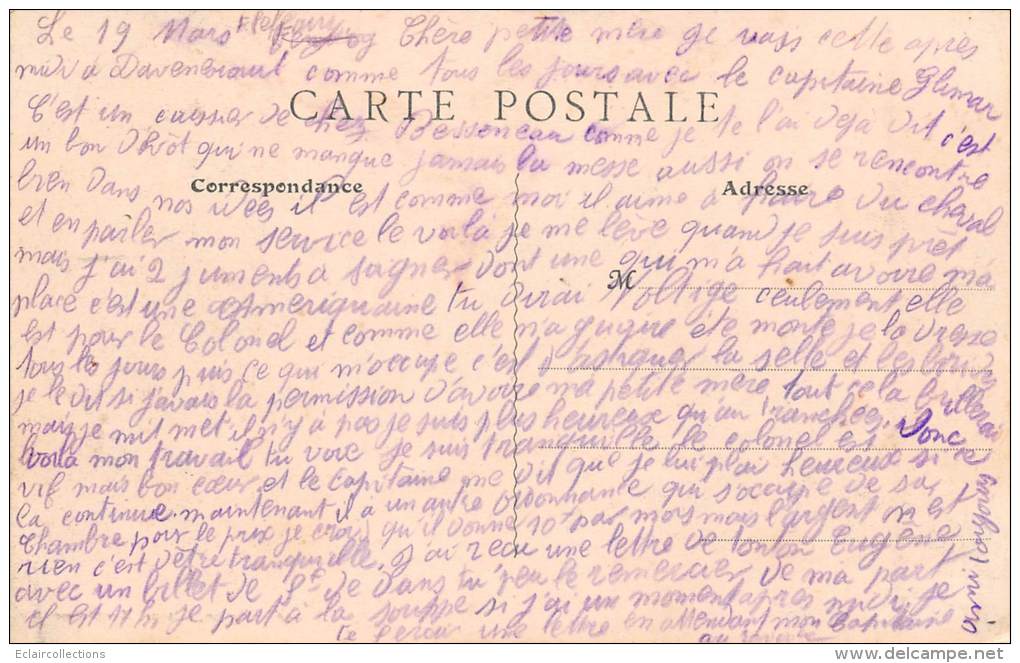 Le 19 Mars Chère petite mère je vais cette après
midi à Davenescourt comme tous les jours avec le capitaine
CARTE POSTALE
C'est un caissier de chez Bessonneau comme je te l'ai déjà dit c'est
un bon dévôt qui ne manque jamais la messe aussi on se rencontre
Correspondance
Adresse
bien dans nos idées il est comme moi il aime à faire du cheval
et en parler mon service le voilà je me lève quand je suis prêt
mais j'ai 2 juments à soigner dont une qui m'a fait avoire ma
M
place c'est une Ameriquaine tu vrai Voltige ceulement elle
est pour le Colonel et comme elle n'a guaire été monté je la dresse
tous les jours puis ce qui m'occupe c'est d'astiquer la selle et les
je le dit si j'avais la permission d'avoire ma petite mère tout cela
mais je il n'y a pas je suis plus heureux qu'au tranchées. Donc
voila mon travail tu voie je suis tranquille le colonel est
vif mais bon cœur et le capitaine me dit que je lui plai heureux si
ça continue. maintenant il a un autre ordonnance qui s'occupe de sa
Chambre pour le prix je crois qu'il donne 10f par mois mais l'argent n'est
rien c'est d'être tranquille. J'ai reçu une lettre de tonton Eugène
avec un billet de 5f de dans tu peu le remercier de ma part
il est 17h je part à la soupe si j'ai un moment après midi je
te ferais une lettre en attendant mon Capitaine
au revoire
Eclaircollections
delcampe.net